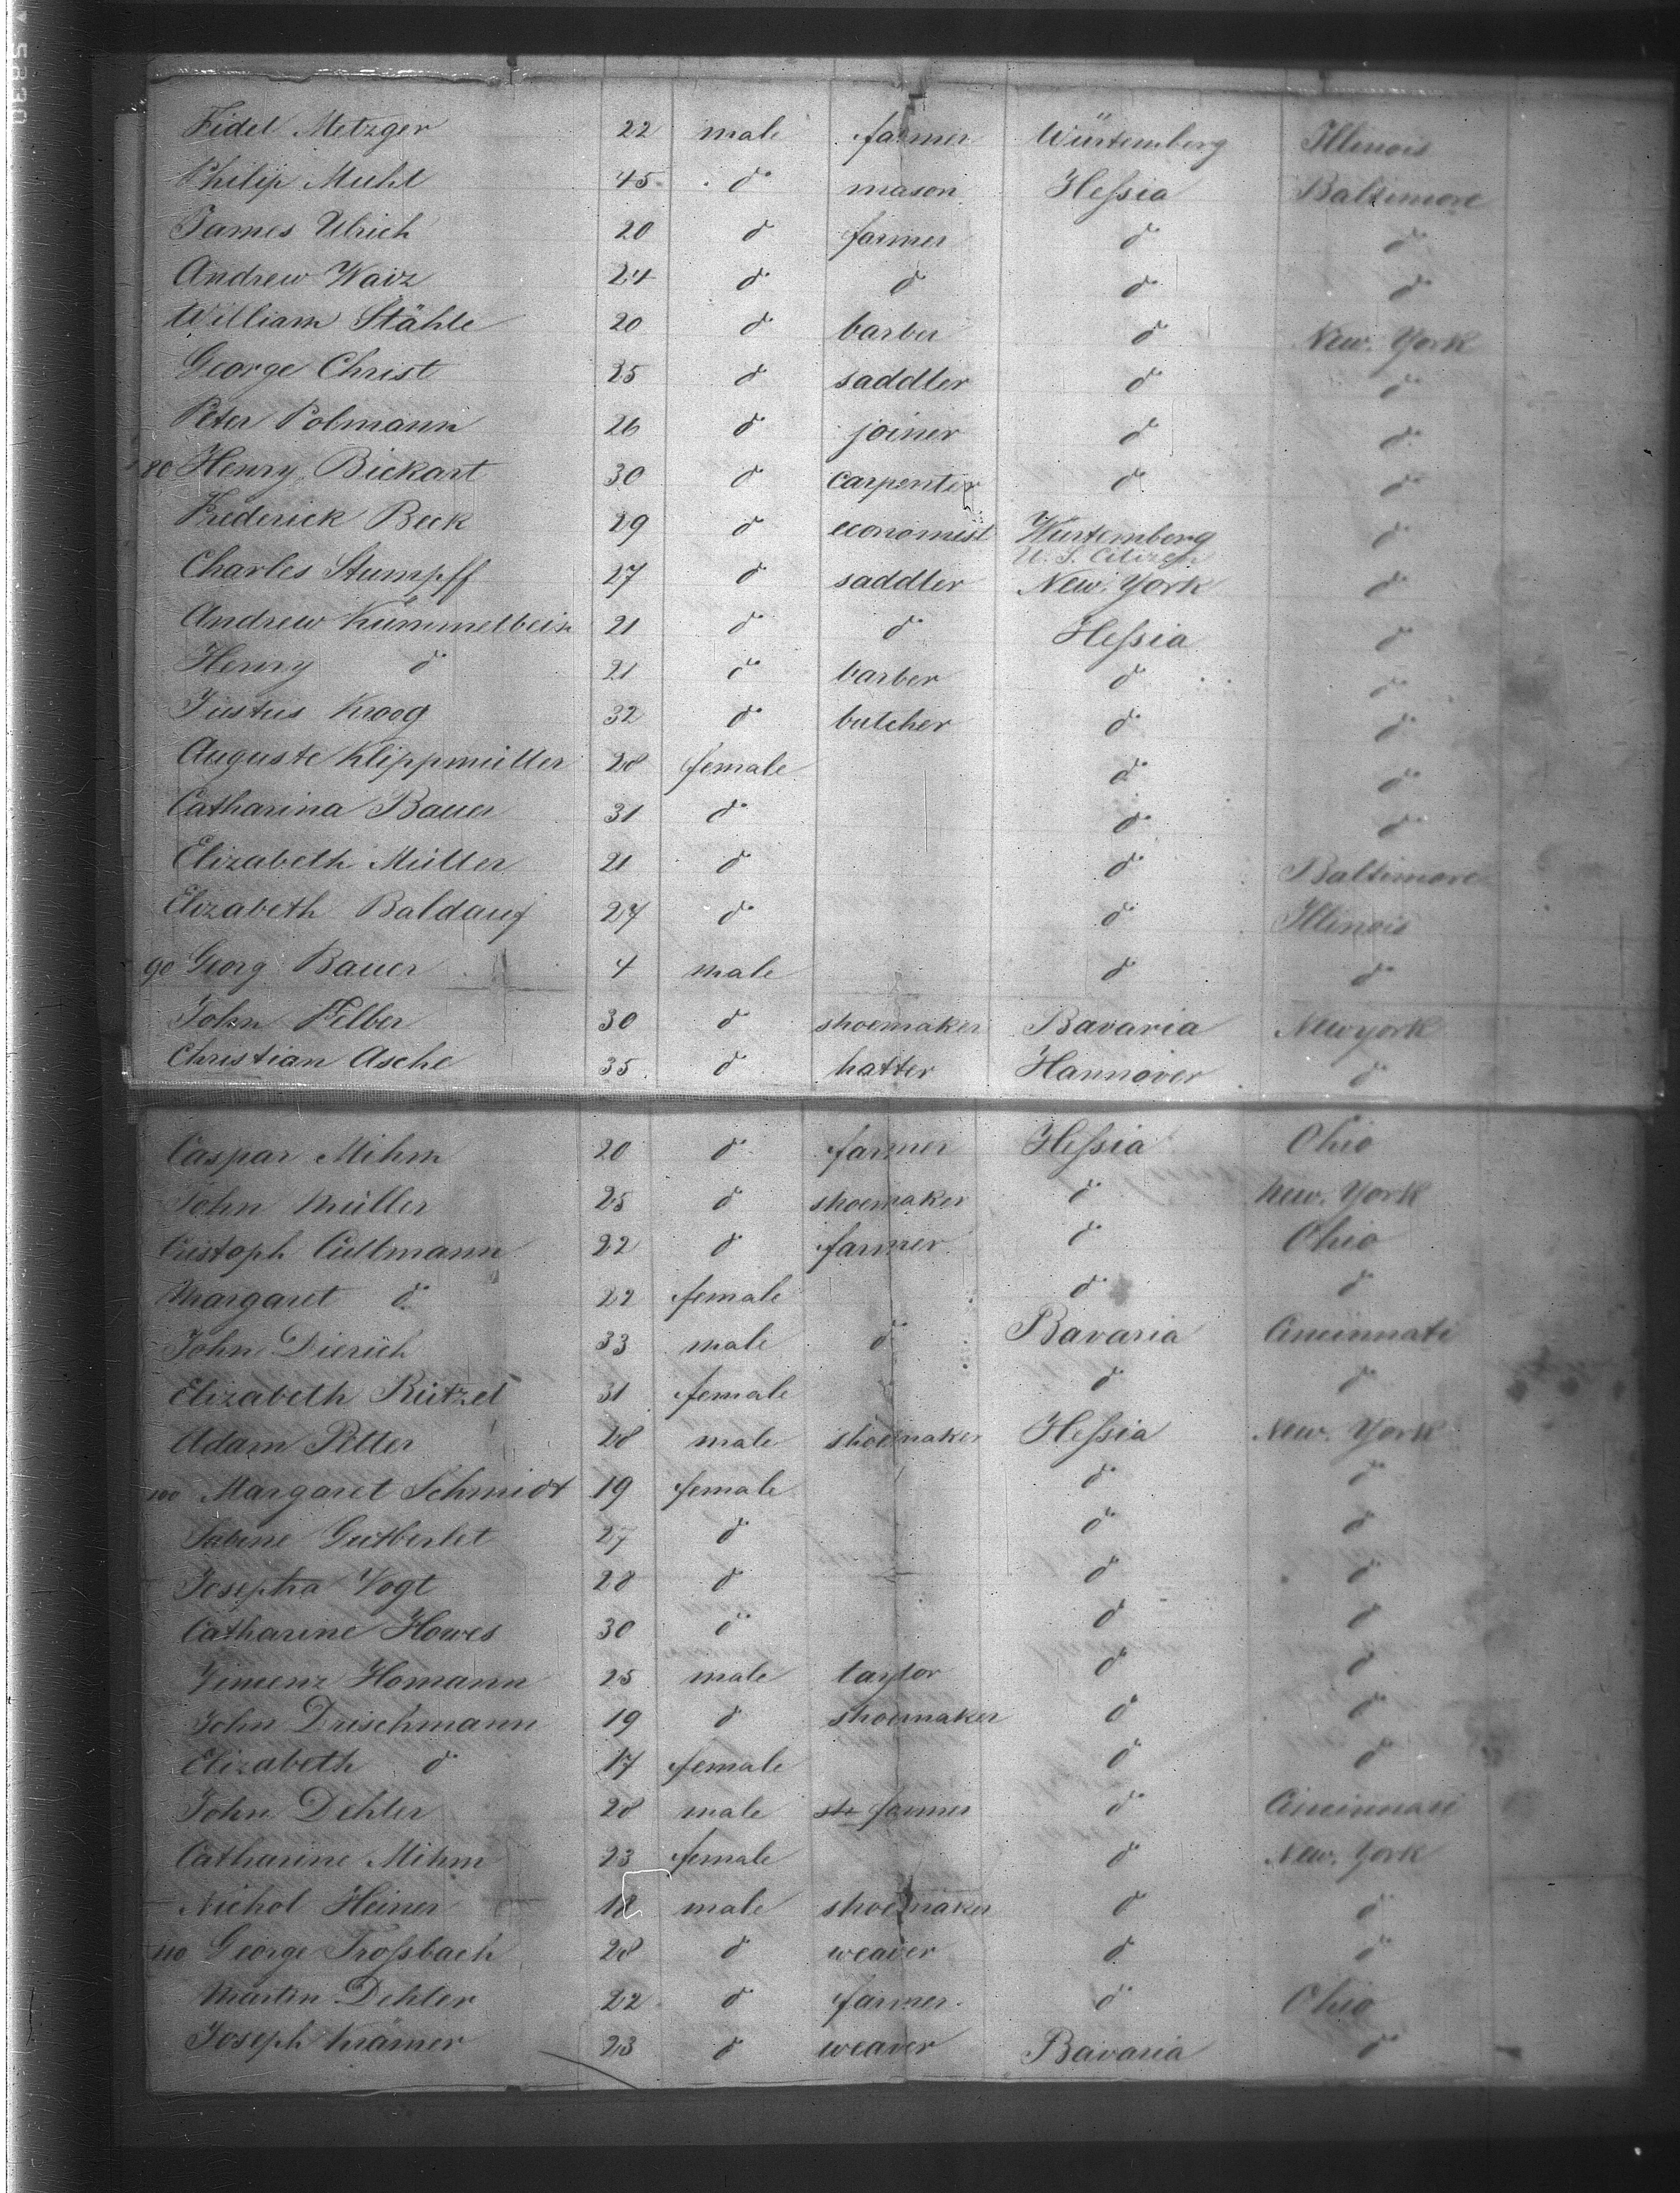 Fidel Metzger 22 male farmer Würtemberg Illinois
Philip Muhl 45 do mason Hessia Baltimore
James Ulrich 20 do farmer do do
Andrew Waiz 24 do do do do
William Stähle 20 do barber do New York
George Christ 25 do saddler do do
Peter Polmann 26 do joiner do do
80 Henry Bickart 30 do carpenter do do
Frederick Beck 29 do economist Würtemberg do
U. S. Citizen
Charles Stumpff 27 do saddler New York do
Andrew Kümmelbein 21 do do Hessia do
Henry do 21 do barber do do
Justus Kroog 32 do butcher do do
Auguste Klippmüller 28 female do do
Catharina Bauer 31 do do do
Elizabeth Müller 21 do do Baltimore
Elizabeth Baldauf 27 do do Illinois
90 Georg Bauer 4 male do do
John Felber 30 do shoemaker Bavaria Newyork
Christian Asche 35 do hatter Hannover do
Caspar Mihm 20 do farmer Hessia Ohio
John Müller 25 do shoemaker do New York
Cristoph Cultmann 22 do farmer do Ohio
Margaret do 22 female do do
John Dierich 33 male do Bavaria Cincinnati
Elizabeth Rützel 31 female do do
Adam Pitter 28 male shoemaker Hessia New York
100 Margaret Schmidt 19 female do do
Sabine Gutberlet 27 do do do
Josepha Vogt 28 do do do
Catharine Howes 30 do do do
Homann 25 male taylor do do
John Drischmann 19 do shoemaker do do
Elizabeth do 17 female do do
John Dehler 28 male farmer do Cincinnati
Catharine Mihm 23 female do New York
Nichol Heiner 18 male shoemaker do do
110 George Trossbach 28 do weaver do do
Martin Dehler 22 do farmer do Ohio
Joseph Krämer 23 do weaver Bavaria do